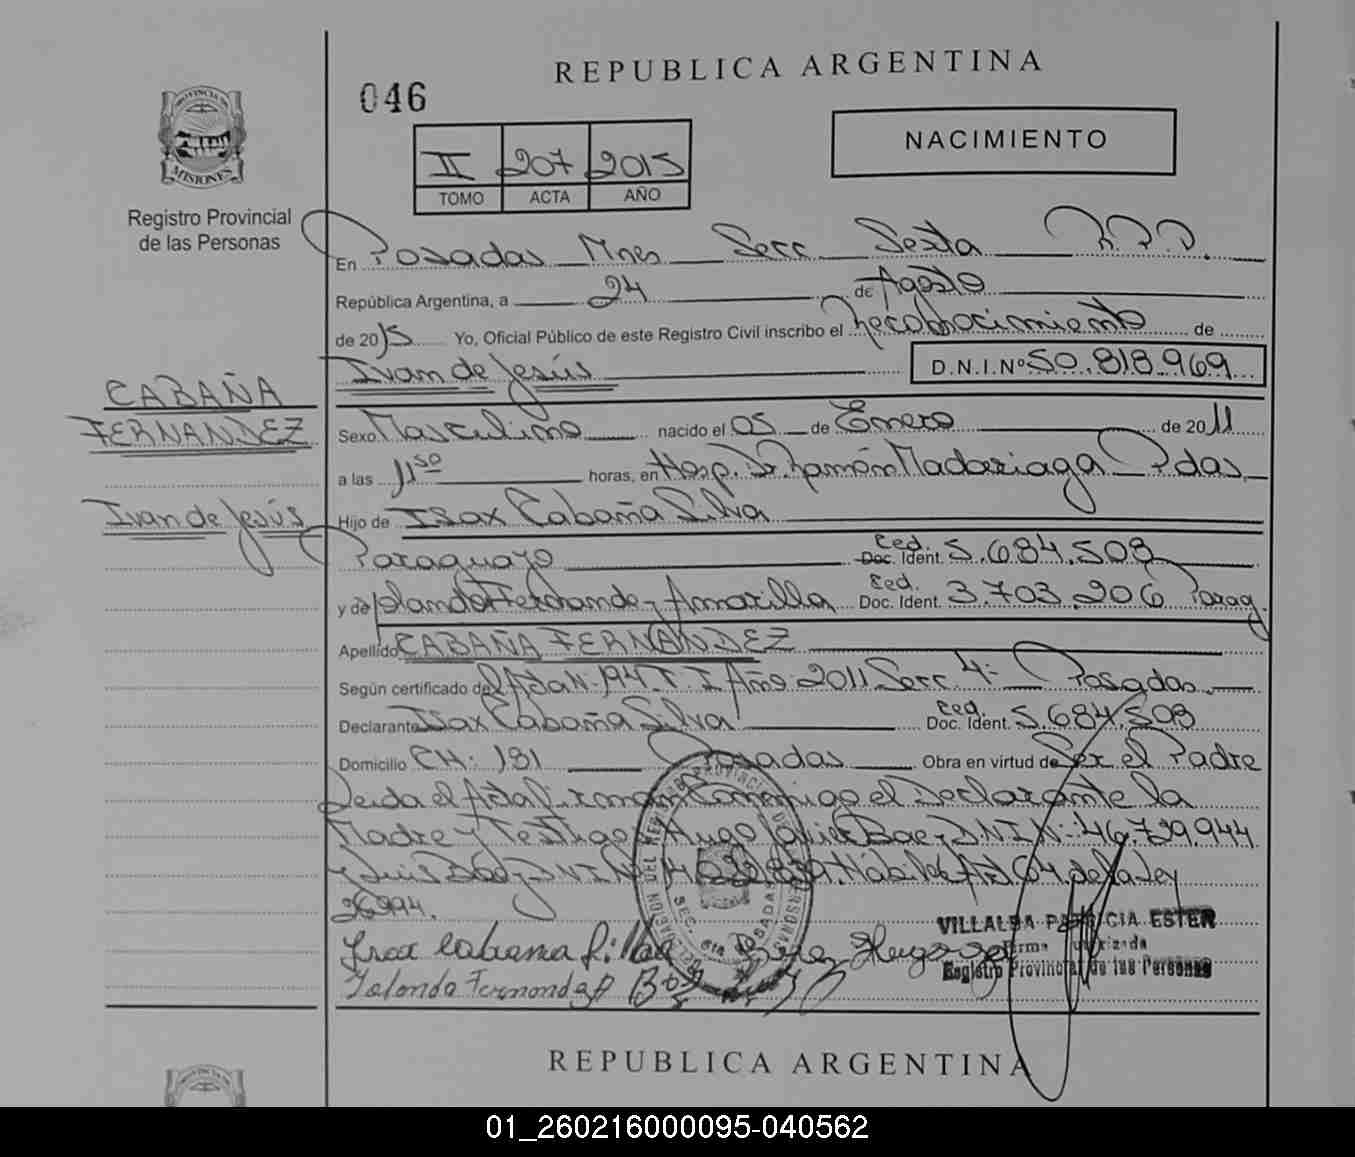 REPUBLICA ARGENTINA
046
NACIMIENTO
II 207 2015
TOMO ACTA AÑO
PROVINCIA DE
MISIONES
Registro Provincial
de las Personas
En Posadas Mnes Secc. Sexta R.P.P.
República Argentina, a 24 de Agosto
de 2015 Yo, Oficial Público de este Registro Civil inscribo el Reconocimiento de
Ivan de Jesús D.N.I.Nº 50.818.969
CABAÑA
FERNANDEZ
Ivan de Jesús
Sexo Masculino nacido el 05 de Enero de 2011
a las 11 50 horas, en Hosp. Dr. Ramón Madariaga Pdas.
Hijo de Isax Cabaña Silva
Paraguayo Ced. Doc. Ident. 5.684.508
y de Iolanda Fernandez Amarilla Ced. Doc. Ident. 3.703.206 Parag.
Apellido CABAÑA FERNANDEZ
Según certificado del Acta N: 194 T: I Año 2011 Secc 4: Posadas
Declarante Isax Cabaña Silva Ced. Doc. Ident. 5.684.508
Domicilio CH: 181 Posadas Obra en virtud de Ser el Padre
Leida el Acta Firman Conmigo el Declarante la
Madre y Testigo Hugo Javier Baez DNI N: 46.729.944
y Luis Baez DNI N: Hábil de Art 64 de la Ley
26994.
VILLALBA PATRICIA ESTER
Firma Autorizada
Registro Provincial de las Personas
Isax Cabana Silva Baez Hugo
Iolanda Fernandez
REPUBLICA ARGENTINA
01_260216000095-040562